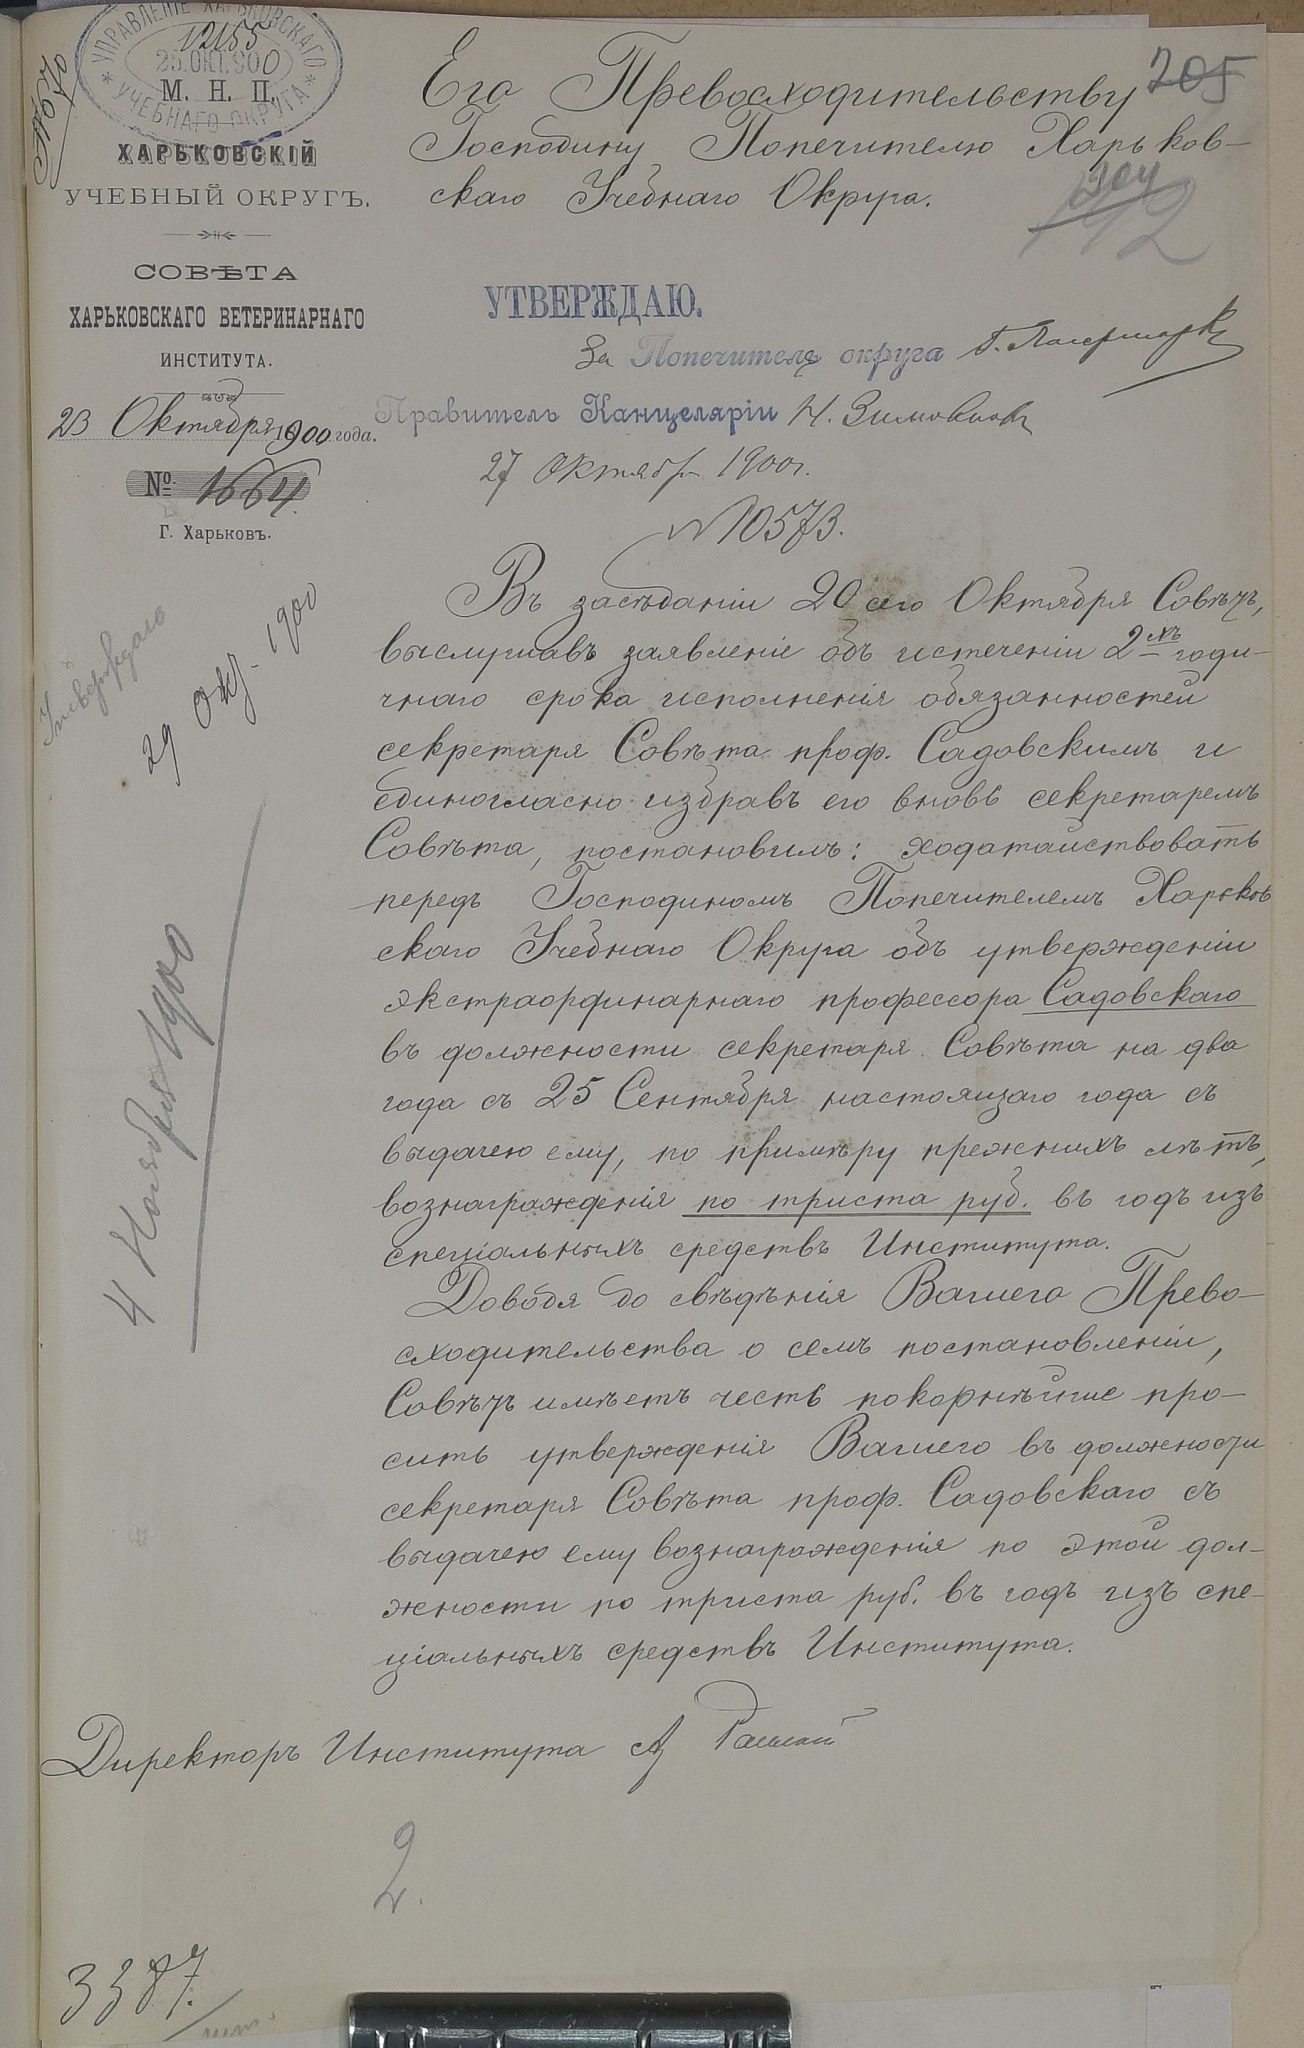 УПРАВЛЕНІЕ ХАРЬКОВСКАГО
12155
25.ОКТ.900
М. Н. П.
УЧЕБНАГО ОКРУГА
ХАРЬКОВСКІЙ
УЧЕБНЫЙ ОКРУГЪ.
СОВѢТА
ХАРЬКОВСКАГО ВЕТЕРИНАРНАГО
ИНСТИТУТА.
23 Октября 1900 года.
№ 1664.
Г. Харьковъ.
205
304
Его Превосходительству
Господину Попечителю Харьков-
скаго Учебнаго Округа.
УТВЕРЖДАЮ.
За Попечителя округа
Правитель Канцеляріи Н.
27 Октября 1900 г.
№ 10573.
Утверждаю
29 Окт. 1900
4 Ноября 1900
Въ засѣданіи 20 сего Октября Совѣтъ,
выслушавъ заявленіе объ истеченіи 2-хъ годи-
чнаго срока исполненія обязанностей
секретаря Совѣта проф. Садовскимъ и
единогласно избравъ его вновь секретаремъ
Совѣта, постановилъ: ходатайствовать
передъ Господиномъ Попечителемъ Харьков
скаго Учебнаго Округа объ утвержденіи
экстраординарнаго профессора Садовскаго
въ должности секретаря Совѣта на два
года съ 25 Сентября настоящаго года съ
выдачею ему, по примѣру прежнихъ лѣтъ,
вознагражденія по триста руб. въ годъ изъ
спеціальныхъ средствъ Института.
Доводя до свѣдѣнія Вашего Прево-
сходительства о семъ постановленіи,
Совѣтъ имѣетъ честь покорнѣйше про-
сить утвержденія Вашего въ должности
секретаря Совѣта проф. Садовскаго съ
выдачею ему вознагражденія по этой дол-
жности по триста руб. въ годъ изъ спе-
ціальныхъ средствъ Института.
Директоръ Института
2.
3387.